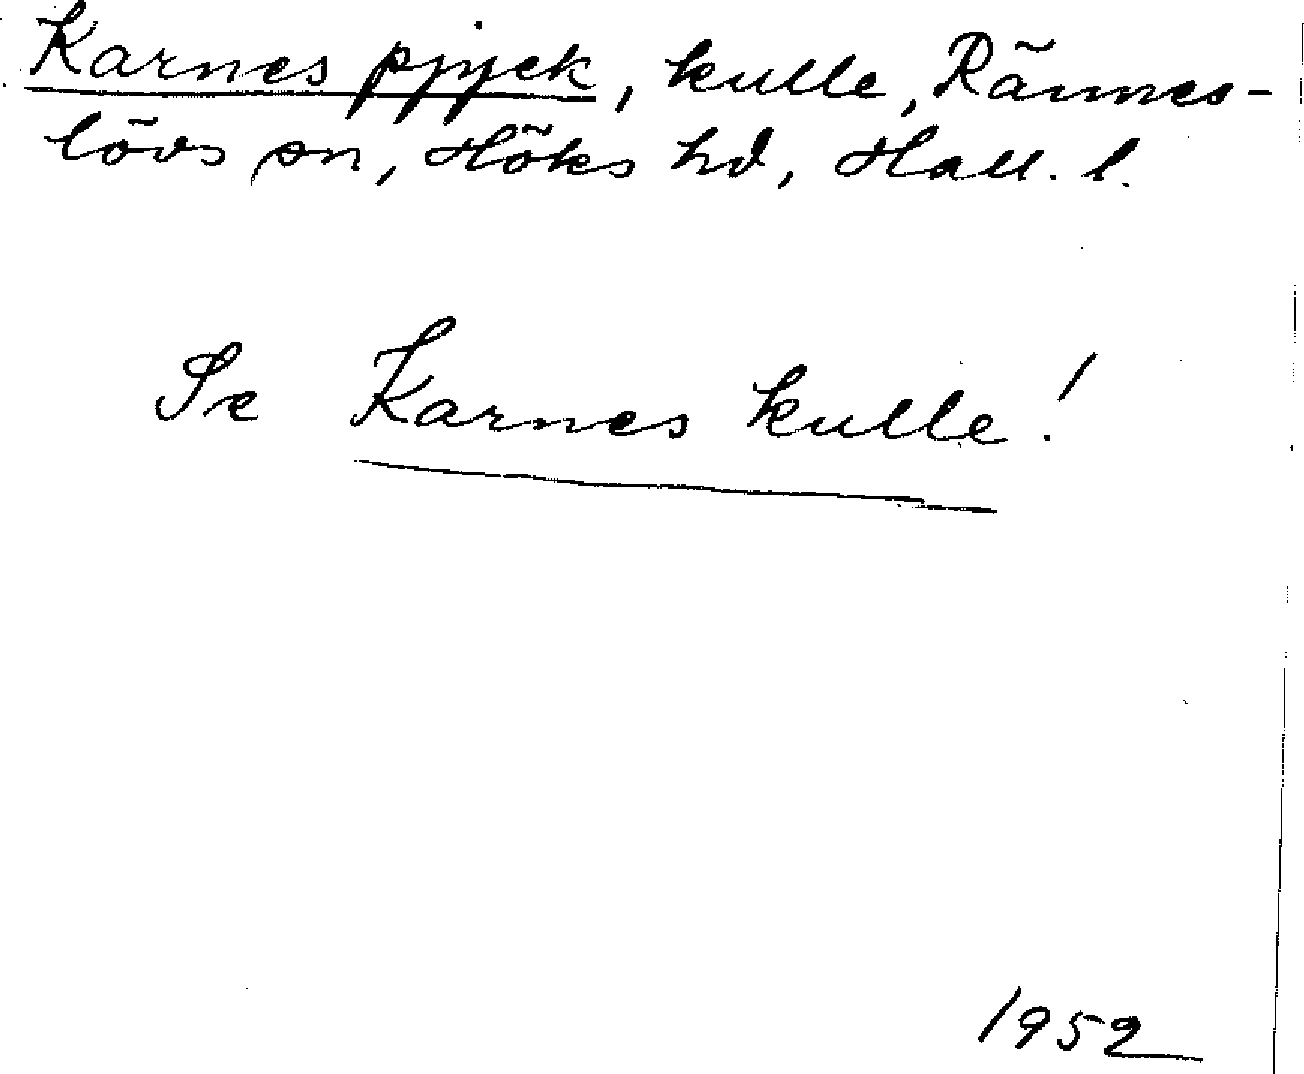 Karnes pjyek, kulle, Rännes-
lövs sn, Höks hd, Hall. l.
Se Karnes kulle!
1952